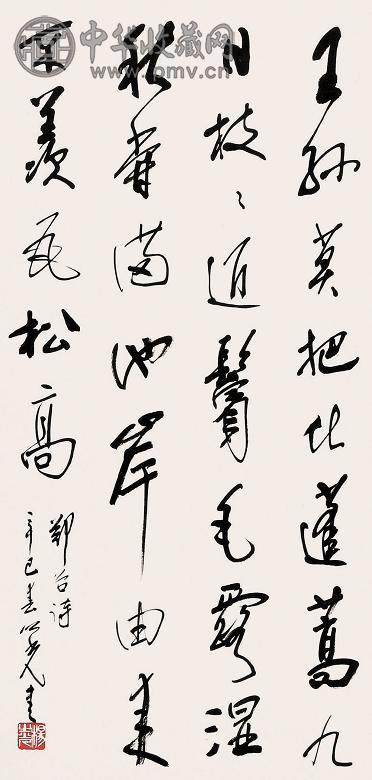 王孙莫把比蓬蒿九
日枝〻近鬢毛露湿
秋香满池岸由来
羡瓦松高
郑谷诗
辛巳春
中华收藏网
www.pmv.cn